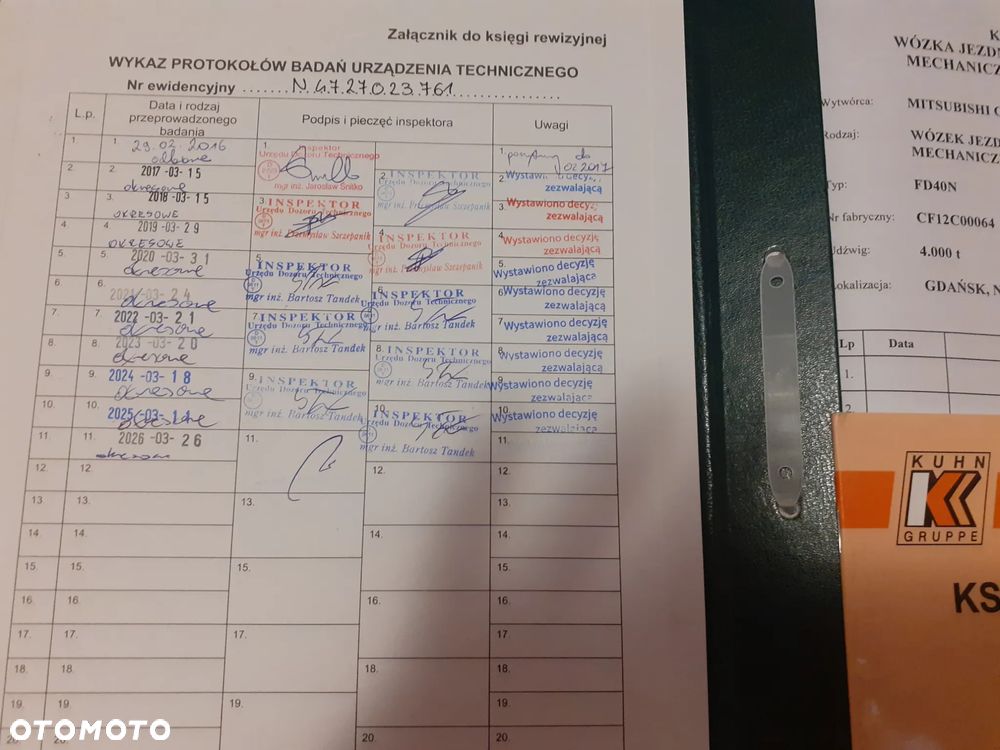 Załącznik do księgi rewizyjnej
WYKAZ PROTOKOŁÓW BADAŃ URZĄDZENIA TECHNICZNEGO
Nr ewidencyjny ...... N.47.270.23.761 ...............
L.p.
Data i rodzaj przeprowadzonego badania
Podpis i pieczęć inspektora
Uwagi
1. 1. 29.02.2016
1. Inspektor
Urzędu Dozoru Technicznego
mgr inż. Jarosław Snitko
1. do 02.2017
2. 2. 2017 -03- 15
okresowe
2. INSPEKTOR
Urzędu Dozoru Technicznego
mgr inż. Przemysław Szczepanik
2. Wystawiono decyzję
zezwalającą
3. 3. 2018 -03- 15
OKRESOWE
3. INSPEKTOR
Urzędu Dozoru Technicznego
mgr inż. Przemysław Szczepanik
3. Wystawiono decyzję
zezwalającą
4. 4. 2019 -03- 29
OKRESOWE
4. INSPEKTOR
Urzędu Dozoru Technicznego
mgr inż. Przemysław Szczepanik
4. Wystawiono decyzję
zezwalającą
5. 5. 2020 -03- 31
okresowe
5. INSPEKTOR
Urzędu Dozoru Technicznego
mgr inż. Bartosz Tandek
5. Wystawiono decyzję
zezwalająca
6. 6. 2021 -03- 24
okresowe
6. INSPEKTOR
Urzędu Dozoru Technicznego
mgr inż. Bartosz Tandek
6. Wystawiono decyzję
zezwalającą
7. 7. 2022 -03- 21
okresowe
7. INSPEKTOR
Urzędu Dozoru Technicznego
mgr inż. Bartosz Tandek
7. Wystawiono decyzję
zezwalającą
8. 8. 2023 -03- 20
okresowe
8. INSPEKTOR
Urzędu Dozoru Technicznego
mgr inż. Bartosz Tandek
8. Wystawiono decyzję
zezwalającą
9. 9. 2024 -03- 18
okresowe
9. INSPEKTOR
Urzędu Dozoru Technicznego
mgr inż. Bartosz Tandek
9. Wystawiono decyzję
zezwalającą
10. 10. 2025 -03- 11
10. INSPEKTOR
Urzędu Dozoru Technicznego
mgr inż. Bartosz Tandek
10. Wystawiono decyzję
zezwalającą
11. 11. 2026 -03- 26
okresowe
11. 11.
12. 12. 12. 12.
13. 13. 13. 13.
14. 14. 14. 14.
15. 15. 15. 15.
16. 16. 16. 16.
17. 17. 17. 17.
18. 18. 18. 18.
19. 19. 19. 19.
20. 20. 20.
K
WÓZKA JEZDN
MECHANICZ
Wytwórca: MITSUBISHI C
Rodzaj: WÓZEK JEZDN
MECHANICZ
Typ: FD40N
Nr fabryczny: CF12C00064
Udźwig: 4.000 t
Lokalizacja: GDAŃSK, N
Lp Data
1.
2.
KUHN
K
GRUPPE
KS
OTOMOTO